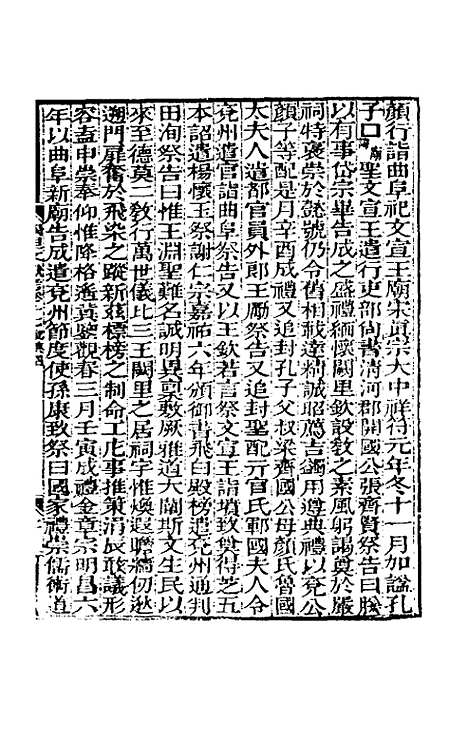 顏行詣曲阜祀文宣王廟宋真宗大中祥符元年冬十一月加謚孔
子曰聖文宣王遣行吏部尚書清河郡開國公張齊賢祭告曰朕
以有事岱宗畢告成之盛禮緬懷闕里欽設教之素風躬謁奠於嚴
祠特褒崇於懿號仍令舊相載達精誠昭薦吉蠲用遵典禮以兗公
顏子等配是月辛酉成禮又追封孔子父叔梁齊國公母顏氏魯國
太夫人遣都官員外郎王勵祭告又追封聖配亓官氏鄆國夫人令
兗州遣官詣曲阜祭告又以王欽若言祭文宣王詣墳致奠得芝五
本詔遣楊懷玉祭謝仁宗嘉祐六年頒御書飛白殿榜遣兗州通判
田洵祭告曰惟王淵聖難名誠明異稟敷厥雅道大闡斯文生民以
來至德莫二敎行萬世儀比三王闕里之居祠宇惟煥遐瞻牆仞逖
遡門扉奮於飛染之蹤新茲標榜之制命工庀事推策涓辰敢議形
容盍申崇奉仰惟降格遙冀鑒觀春三月壬寅成禮金章宗明昌六
年以曲阜新廟告成遣兗州節度使孫康致祭曰國家禮崇儒術道